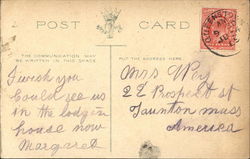 POST CARD
THE COMMUNICATION MAY
BE WRITTEN IN THIS SPACE
PUT THE ADDRESS HERE
I wish you
Could see us
in the lodgen
house now
Margaret
Mrs Wry
22 Prospect st
Taunton mass
America